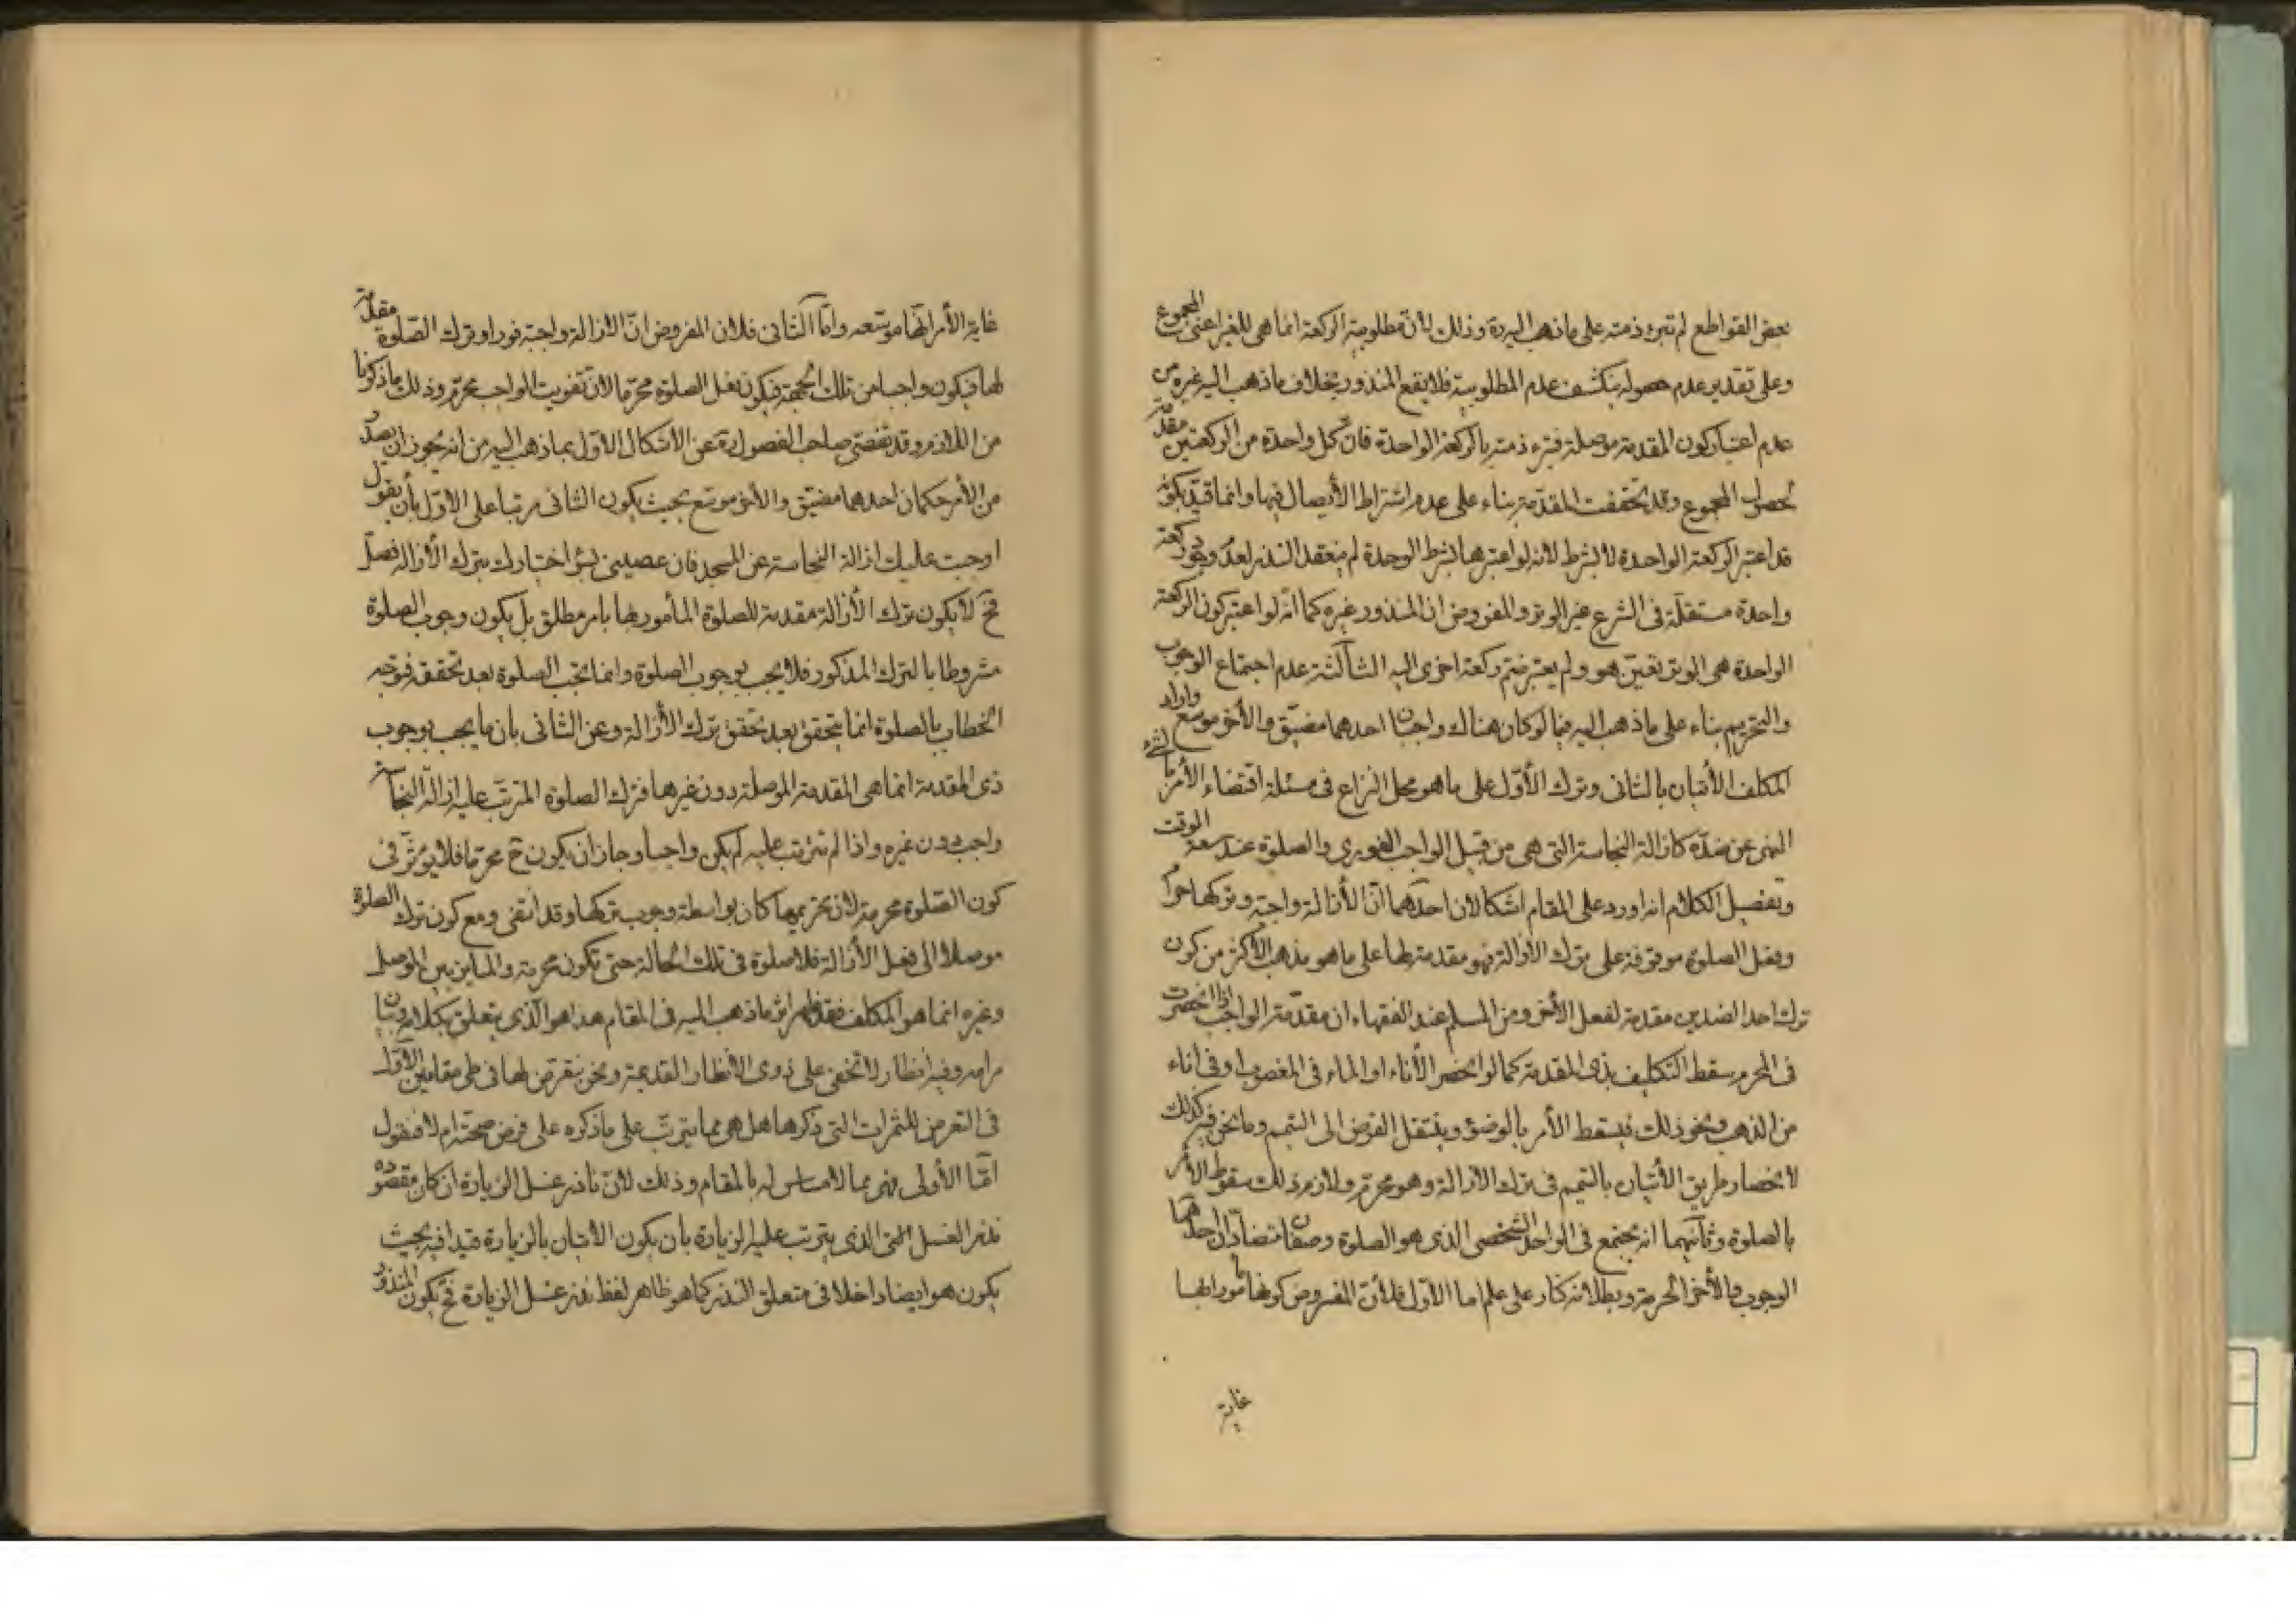 بعض القواطع لم تبرء ذمته على ما ذهب اليه ره وذلك لانّ مطلوبية الركعة انما هى للغير اعنى المجموع
وعلى تقدير عدم حصوله ينكشف عدم المطلوبية فلا يقع المنذور بخلاف ما ذهب اليه غيره من
عدم اعتبار كون المقدمة موصلة فتبرء ذمته بالركعة الواحدة فانّ كل واحدة من الركعتين مقدّمة
لحصول المجموع وقد تحققت المقدّمة بناء على عدم اشتراط الأيصال فيها وانما قيّد بكونه
قد اعتبر الركعة الواحدة لا بشرط لانه لو اعتبرها بشرط الوحدة لم ينعقد النذر لعدم وجود ركعة
واحدة مستقلّة فى الشرع غير الوتر والمفروض ان المنذور غيره كما انّه لو اعتبر كون الركعة
الواحدة هى الوتر تعيّن هو ولم يعتبر ضم ركعة اخرى اليه الثالثة عدم اجتماع الوجوب
والتحريم بناء على ما ذهب اليه فيما لو كان هناك واجبان احدهما مضيّق والأخر موسّع واراد
المكلف الأتيان بالثانى وترك الأوّل على ما هو محل النزاع فى مسئلة اقتضاء الأمر بالشئ
النهى عن ضدّه كازالة النجاسة التى هى من قبيل الواجب الفورى والصلوة عند سعة الوقت
وتفصيل الكلام انه اورد على المقام اشكالان احدهما انّ الأزالة واجبة وتركها حرام
وفعل الصلوة موقوفة على ترك الازالة فهو مقدمة لها على ما هو مذهب الأكثر من كون
ترك احد الضدين مقدمة لفعل الأخر ومن المسلم عند الفقهاء ان مقدّمة الواجب اذا انحصرت
فى المحرم سقط التكليف بذى المقدمة كما لو انحصر الأناء او الماء فى المغصوب او فى اناء
من الذهب ونحو ذلك فيسقط الأمر بالوضوء وينتقل الفرض الى التيمم وما نحن فيه كذلك
لانحصار طريق الأتيان بالتيمم فى ترك الازالة وهو محرّم ولازم ذلك سقوط الأمر
بالصلوة وثانيهما انه يجتمع فى الواحد الشخصى الذى هو الصلوة وصفان متضادّان احدهما
الوجوب والأخر الحرمة وبطلانه كنار على علم اما الأوّل فلأنّ المفروض كونها مأمورا بها
غاية
غاية الأمر انّها موسّعه وامّا الثانى فلان المفروض انّ الازالة واجبة فورا وترك الصّلوة مقدّمة
لها فيكون واجبا من تلك الجهة فيكون فعل الصلوة محرّما لأنّ تفويت الواجب محرّم وذلك ما ذكرنا
من اللازم وقد تفصّى صاحب الفصول ره عن الأشكال الأوّل بما ذهب اليه من انه يجوز ان يصدر
من الأمر حكمان احدهما مضيّق والأخر موسّع بحيث يكون الثانى مرتبا على الأوّل بأن يقول
اوجبت عليك ازالة النجاسة عن المسجد فان عصيتنى بسوء اختيارك بترك الأزالة فصلّ
فح لا يكون ترك الأزالة مقدمة للصلوة المأمور بها بامر مطلق بل يكون وجوب الصلوة
مشروطا بالترك المذكور فلا يجب بوجوب الصلوة وانما تجب الصلوة بعد تحققه فتوجه
الخطاب بالصلوة انما يتحقق بعد تحقق ترك الأزالة وعن الثانى بان ما يجب بوجوب
ذى المقدمة انما هى المقدمة الموصلة دون غيرها فترك الصلوة المترتّب عليه ازالة النجاسة
واجب دون غيره واذا لم تترتب عليه لم يكن واجبا وجاز ان يكون ح محرّما فلا يؤثّر فى
كون الصّلوة محرمة لان تحريمها كان بواسطة وجوب تركها وقد انتفى ومع كون ترك الصلوة
موصلا الى فعل الأزالة فلا صلوة فى تلك الحالة حتى تكون محرمة والمايز بين الموصل
وغيره انما هو المكلف فقد ظهر اثر ما ذهب اليه فى المقام هذا هو الّذى يتعلق بكلامه وبيان
مرامه وفيه انظار لا تخفى على ذوى الأنظار القديمة ونحن نتعرّض لها فى طى مقامين الأوّل
فى التعرض للثمرات التى ذكرها هل هى مما يترتّب على ما ذكره على فرض صحته ام لا فنقول
امّا الأولى فهى مما لا مساس له بالمقام وذلك لأنّ ناذر غسل الزيارة ان كان مقصوده
نذر الغسل الذى يترتب عليه الزيارة بان يكون الاتيان بالزيارة قيدا فيه بحيث
يكون هو ايضا داخلا فى متعلق النذر كما هو ظاهر لفظ نذر غسل الزيارة فح يكون المنذور